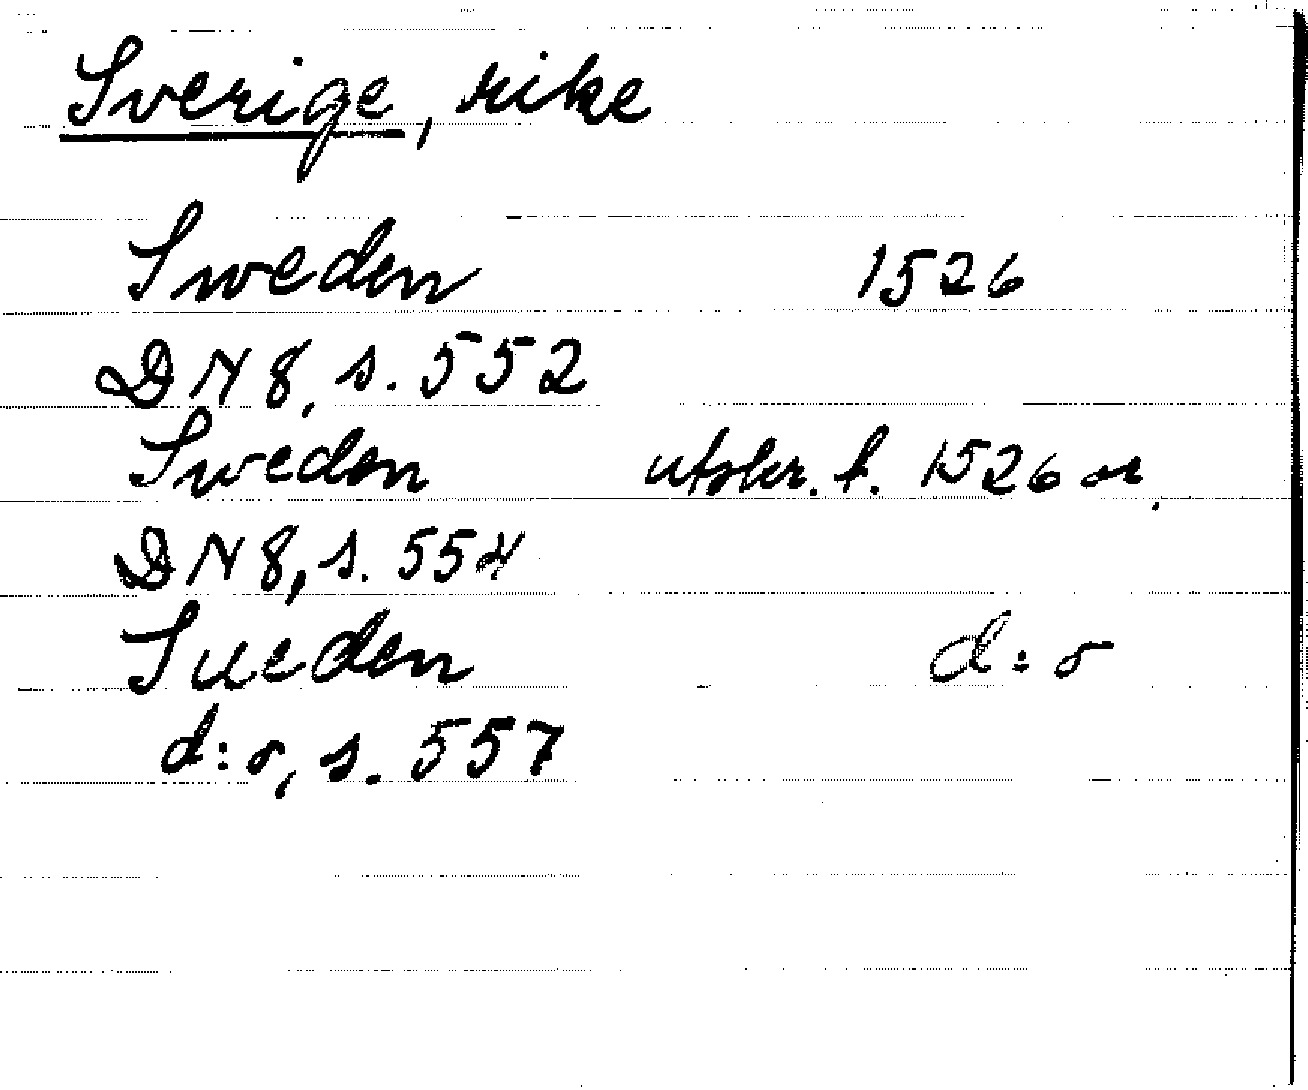 Sverige, rike
Sweden 1526
DN 8, s. 552
Sweden utskr. f. 1526 or.
DN 8, s. 554
Sueden d:o
d:o, s. 557